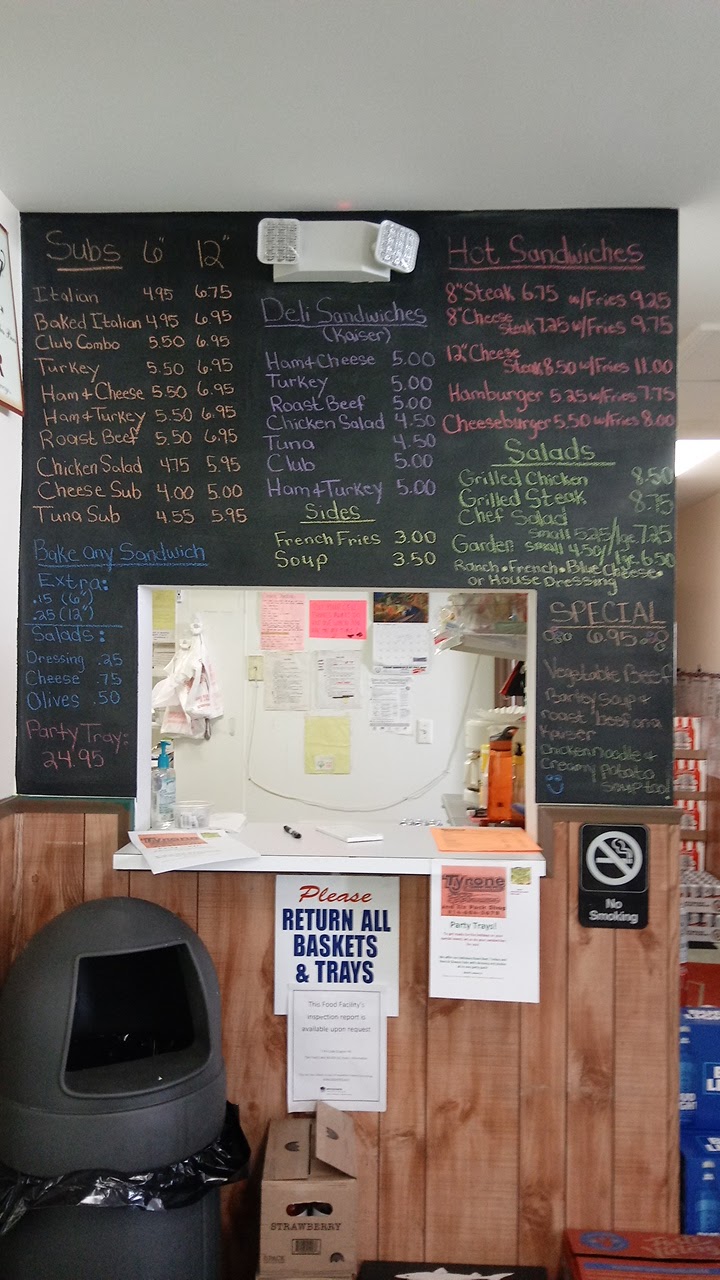 Subs 6" 12"
Italian 4.95 6.75
Baked Italian 4.95 6.95
Club Combo 5.50 6.95
Turkey 5.50 6.95
Ham+Cheese 5.50 6.95
Ham+Turkey 5.50 6.95
Roast Beef 5.50 6.95
Chicken Salad 4.75 5.95
Cheese Sub 4.00 5.00
Tuna Sub 4.55 5.95
Bake any Sandwich
Extra:
.15 (6")
.25 (12")
Salads:
Dressing .25
Cheese .75
Olives .50
Party Tray:
24.95
Deli Sandwiches
(Kaiser)
Ham+Cheese 5.00
Turkey 5.00
Roast Beef 5.00
Chicken Salad 4.50
Tuna 4.50
Club 5.00
Ham+Turkey 5.00
Sides
French Fries 3.00
Soup 3.50
Hot Sandwiches
8" Steak 6.75 w/Fries 9.25
8" Cheese
Steak 7.25 w/Fries 9.75
12" Cheese
Steak 8.50 w/Fries 11.00
Hamburger 5.25 w/Fries 7.75
Cheeseburger 5.50 w/Fries 8.00
Salads
Grilled Chicken 8.50
Grilled Steak 8.75
Chef Salad
small 5.25/lge 7.25
Garden small 4.50/lge 6.50
Ranch • French • Blue Cheese •
or House Dressing
SPECIAL
6.95
Vegetable Beef
Barley Soup +
roast beef on a
Kaiser
Chicken noodle +
Creamy potato
Soup too!
Please
RETURN ALL
BASKETS
& TRAYS
This Food Facility's
inspection report is
available upon request
Tyrone
and Six Pack Shop
Party Trays!
No
Smoking
STRAWBERRY